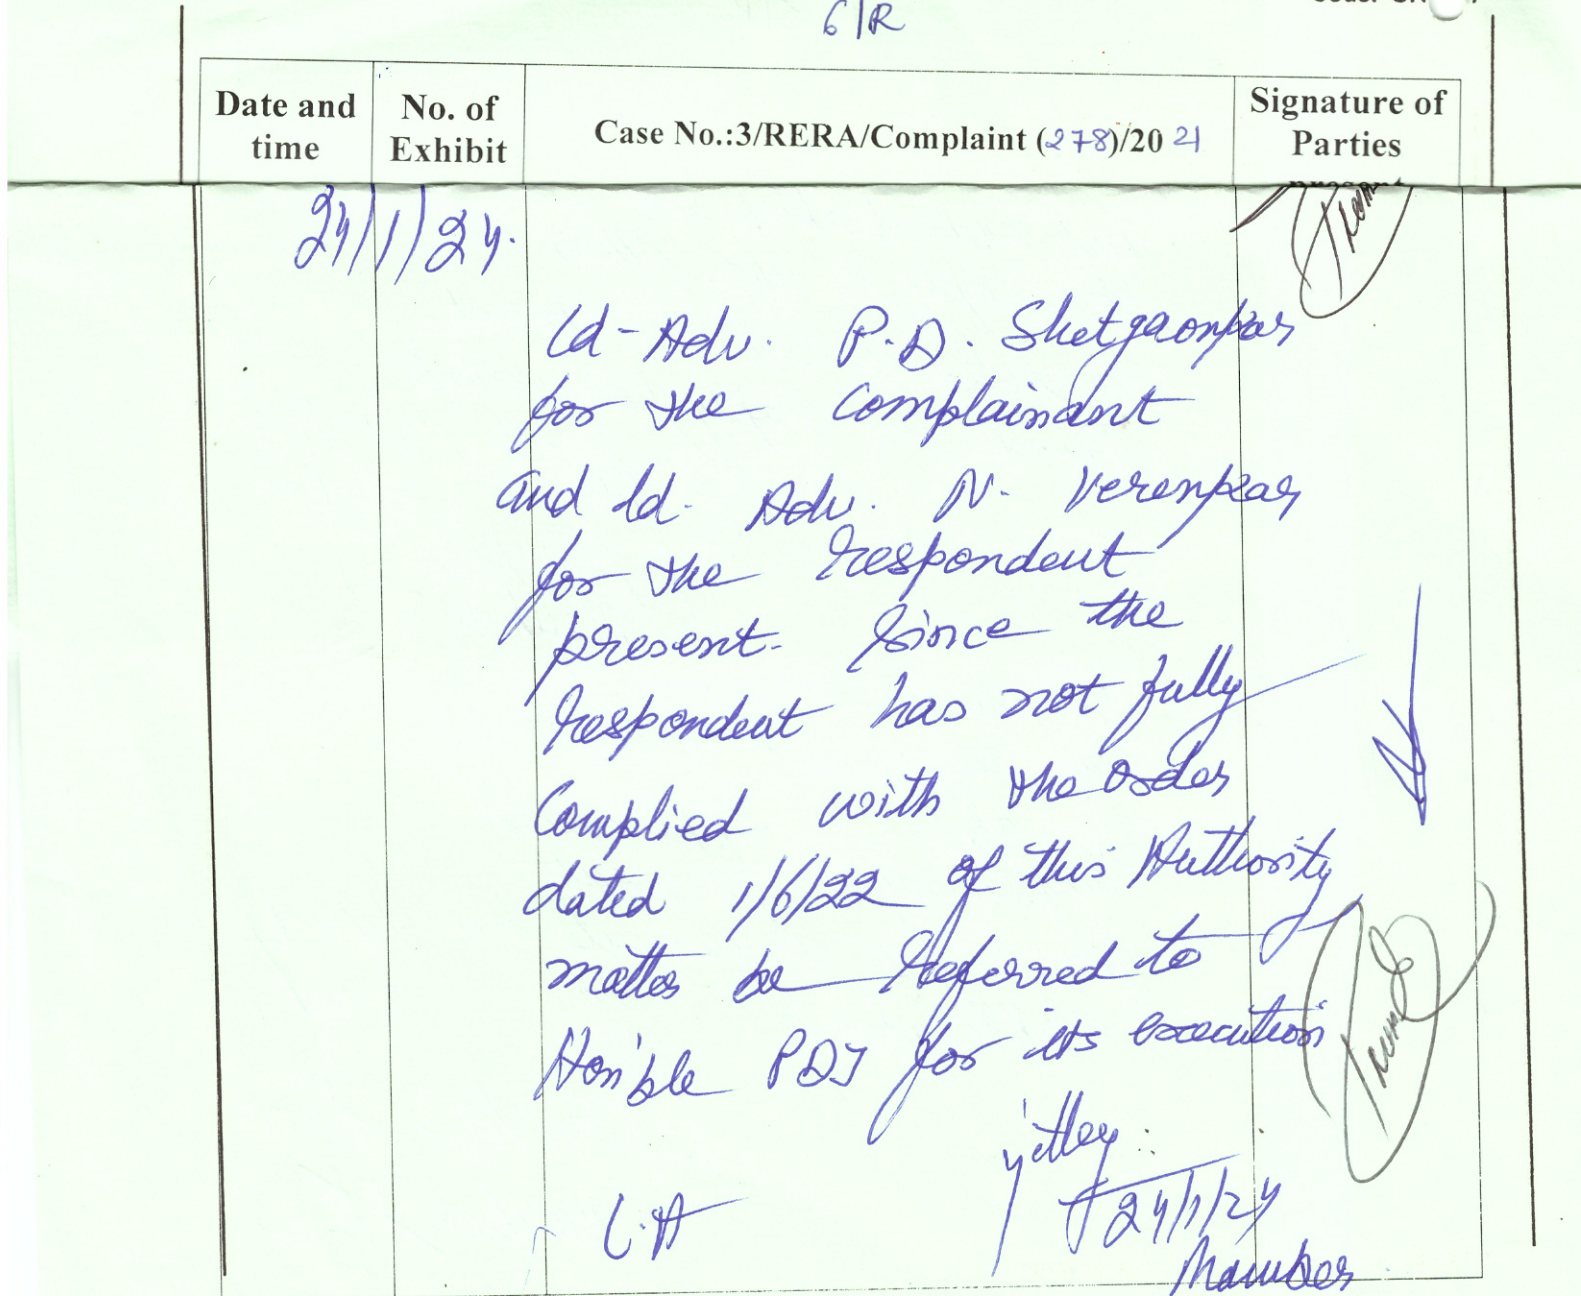 6/R
Date and time
No. of Exhibit
Case No.:3/RERA/Complaint (278)/20 21
Signature of Parties present
24/1/24.
Ld-Adv. P.D. Shetgaonkar
for the Complainant
and Ld. Adv. N. Verenkar
for the respondent
present. Since the
respondent has not fully
Complied with the order
dated 1/6/22 of this Authority
matter be referred to
Hon'ble PDJ for its execution
24/1/24
L.A
Member